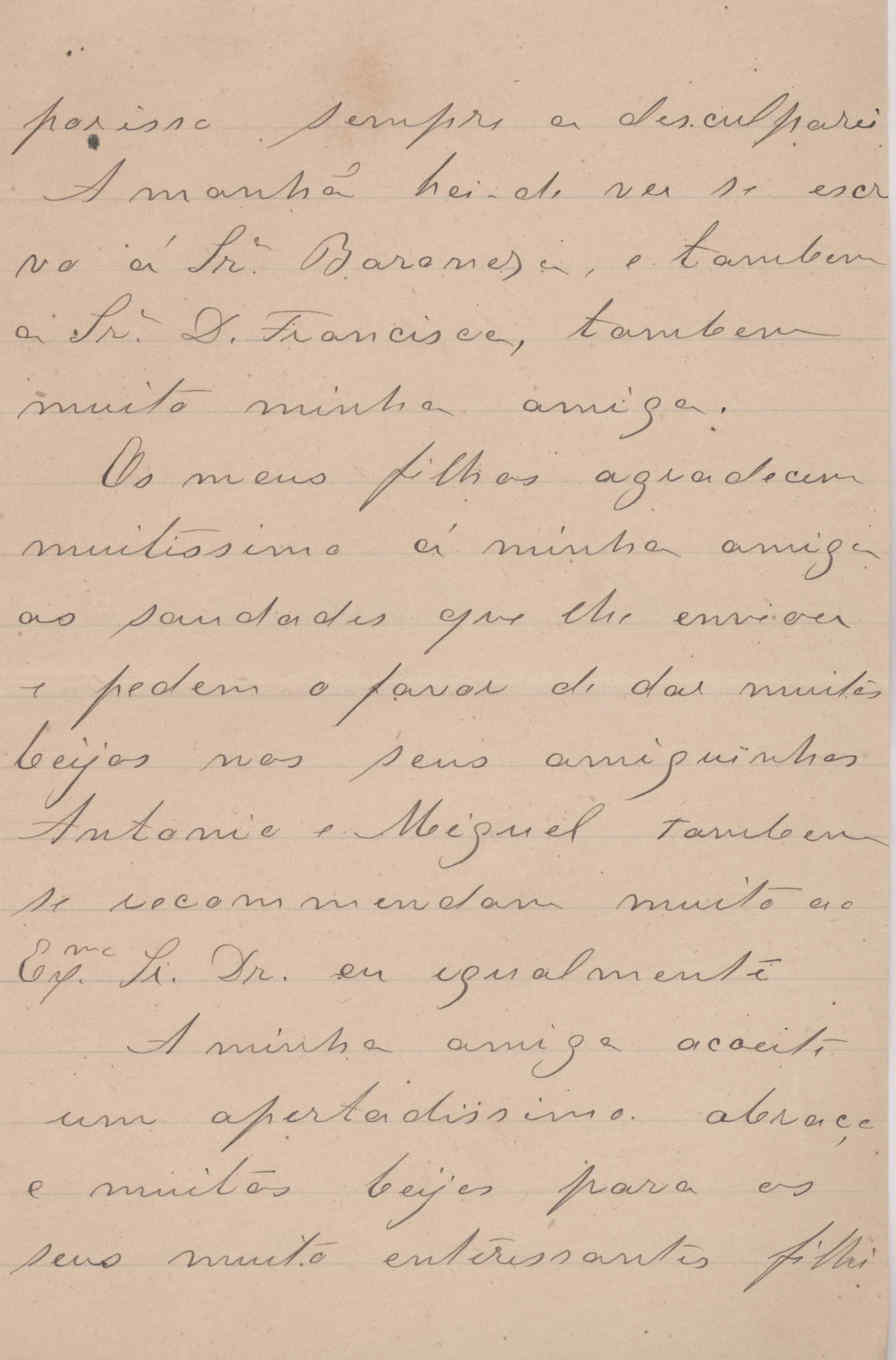 por isso sempre a desculparei
Amanhã hei-de ver se escr
vo á Srª. Baroneza, e tambem
a Srª. D. Francisca, tambem
muito minha amiga.
Os meus filhos agradecem
muitissimo á minha amiga
as saudades que lhe enviou
e pedem o favor de dar muitos
beijos nos seus amiguinhos
Antonio e Miguel tambem
se recommendam muito ao
Exmo. Sr. Dr. eu egualmente
A minha amiga acceite
um apertadissimo abraço
e muitos beijos para os
seus muito enteressantes filhi